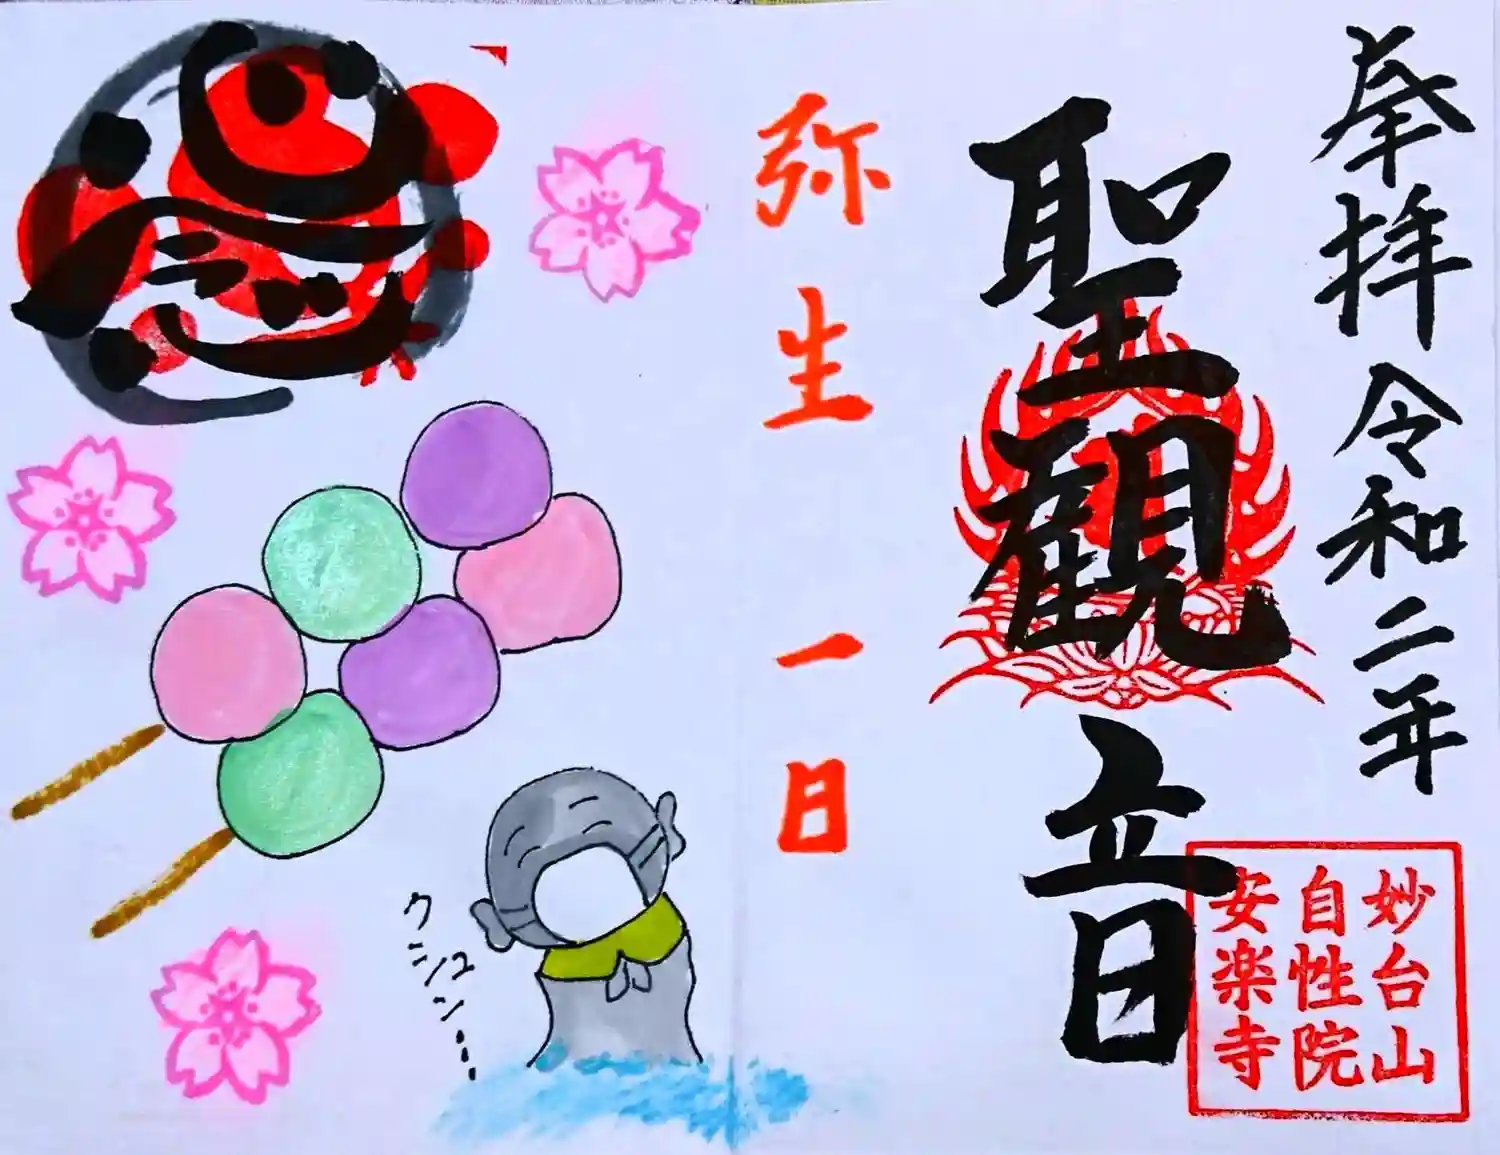 奉拝 令和二年
聖観音
妙台山
自性院
安楽寺
弥生 一日
クシュン…